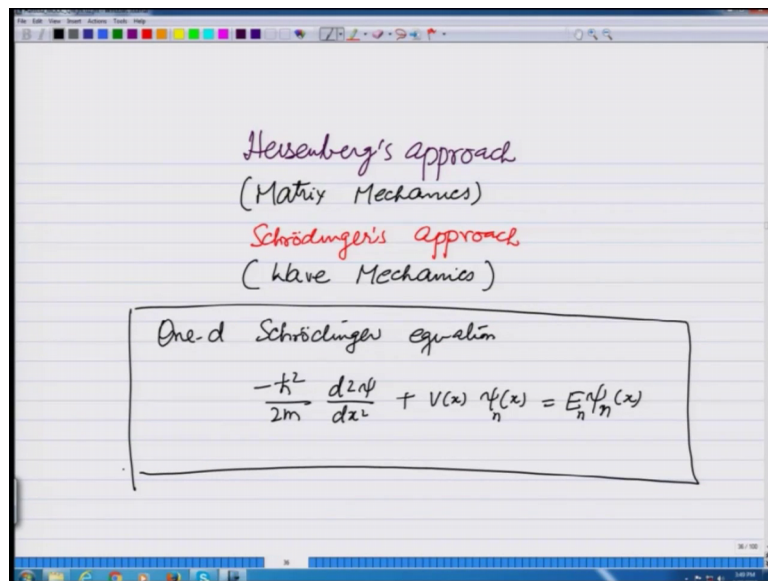 File Edit View Insert Actions Tools Help
Heisenberg's approach
(Matrix Mechanics)
Schrödinger's approach
(Wave Mechanics)
One-d Schrödinger equation
-ħ²/2m d²ψ/dx² + V(x) ψₙ(x) = Eₙψₙ(x)
36 / 100
36
3:40 PM